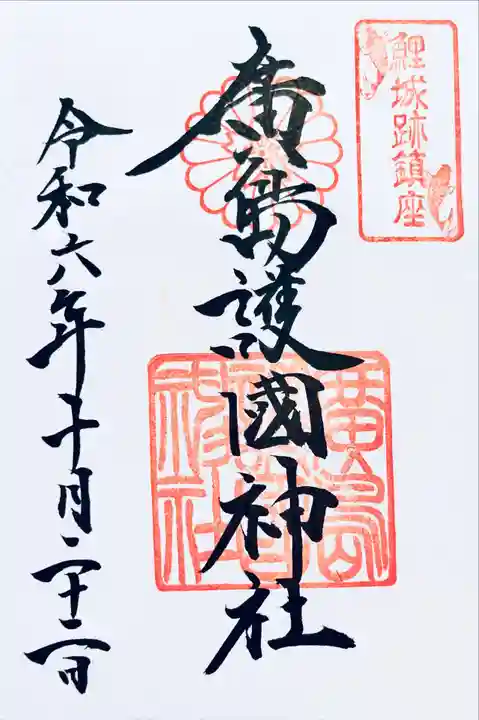 鯉城跡鎮座
廣島護國神社
廣島
護國
神社
令和六年十月二十二日